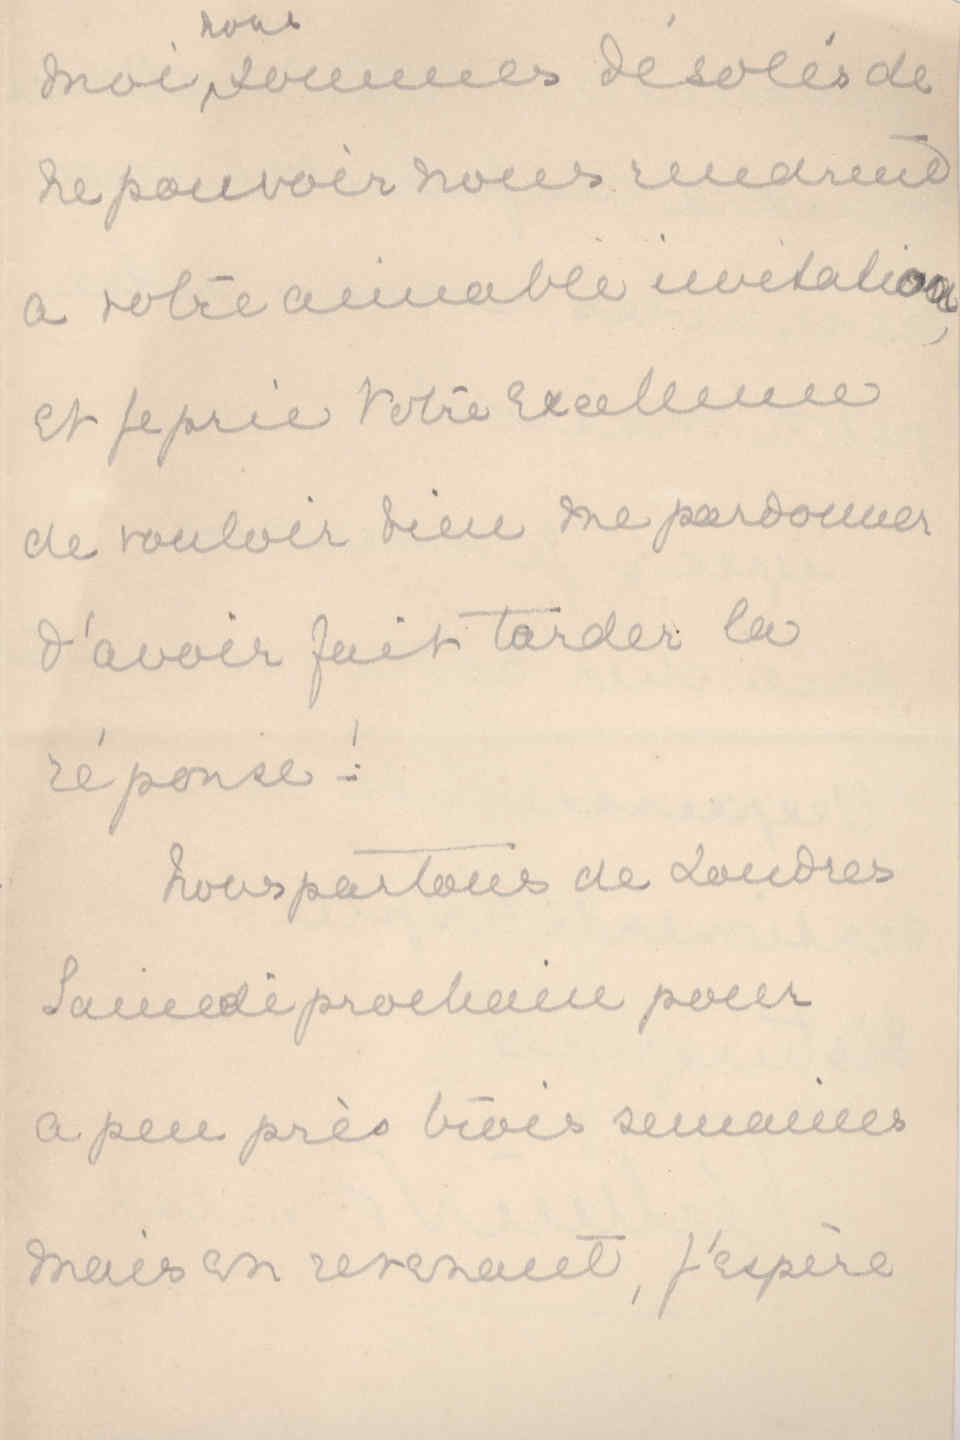 moi, nous sommes désolés de
ne pouvoir nous rendre
a votre aimable invitation,
et je prie Votre Excellence
de vouloir bien me pardonner
d'avoir fait tarder la
réponse!
Nous partons de Londres
Samedi prochain pour
a peu près trois semaines
mais en revenant, j'espère